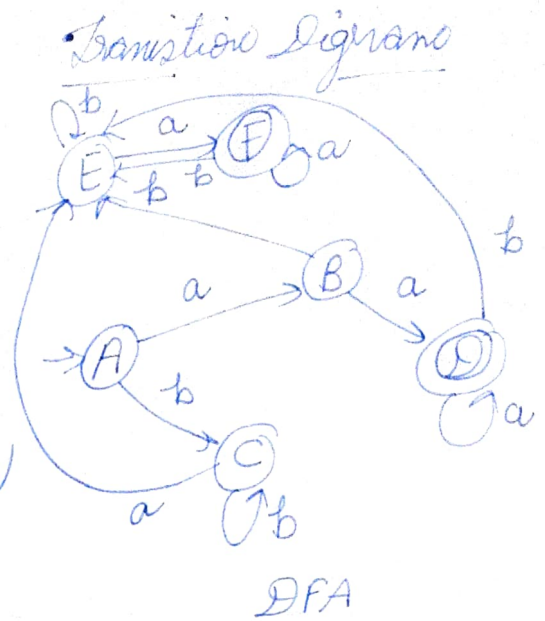 Tranistion Digram
b
a
E
F
a
b
b
B
b
a
a
A
D
b
a
C
a
b
DFA